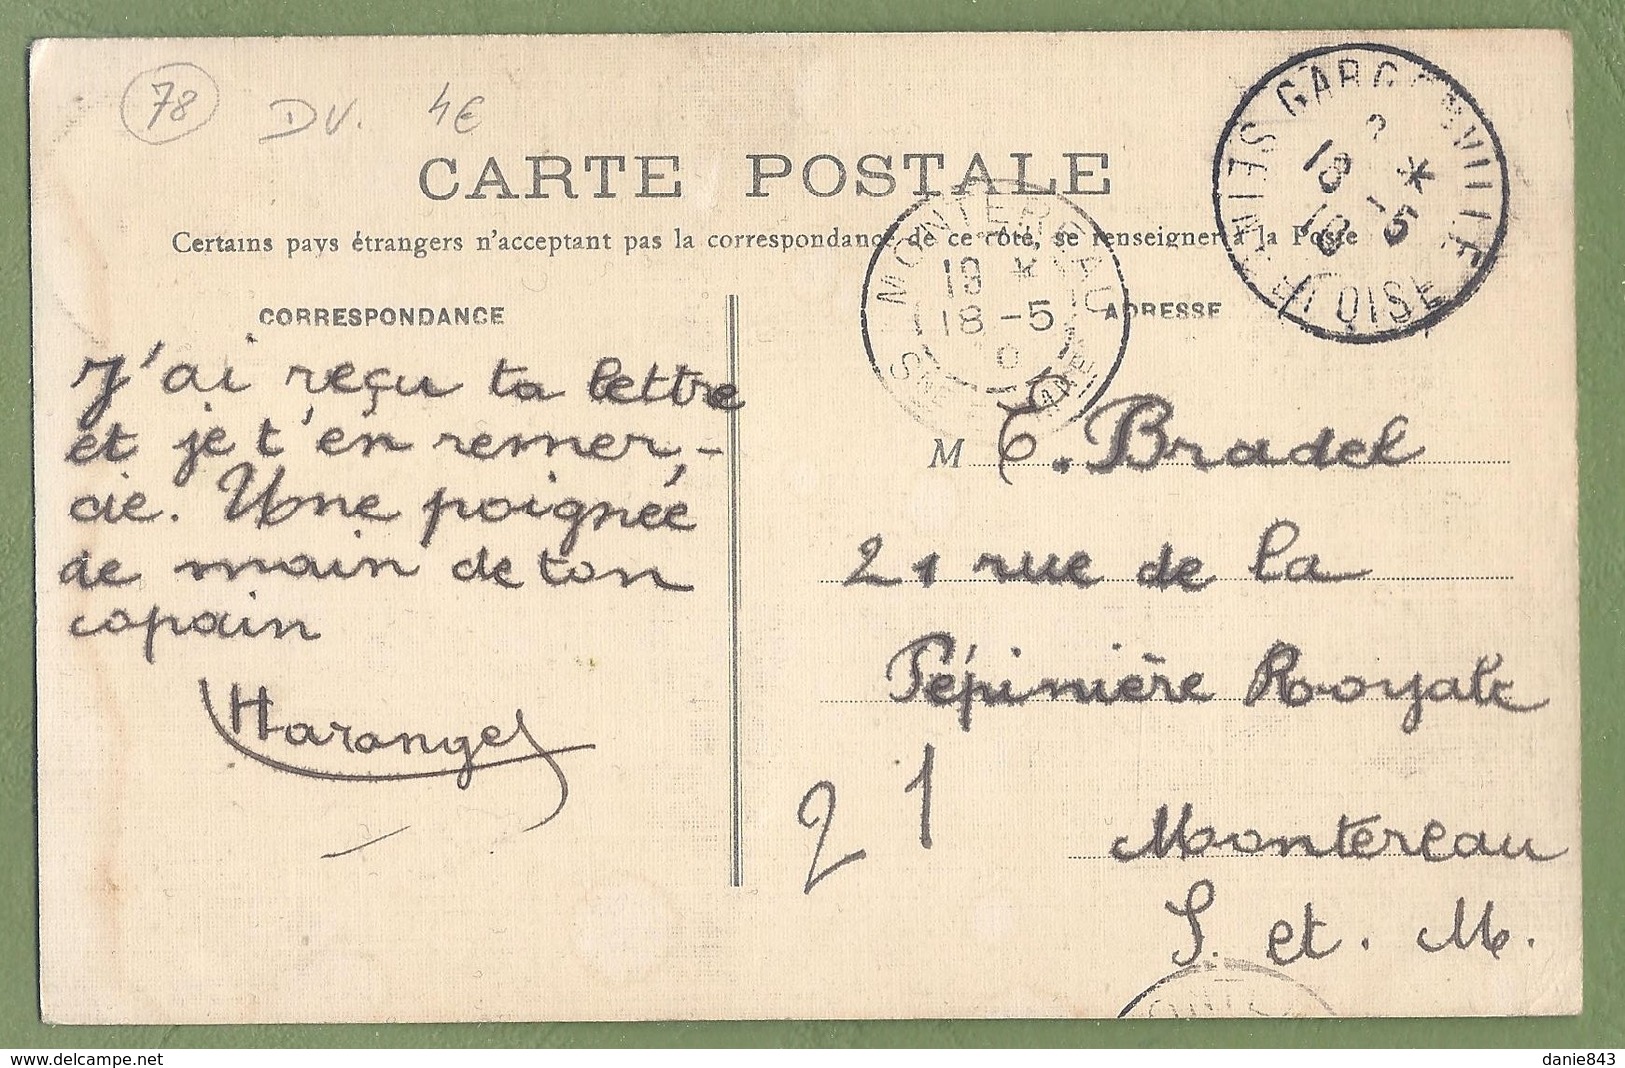 78
DV. 4€
CARTE POSTALE
Certains pays étrangers n'acceptant pas la correspondance de ce côté, se renseigner à la Poste
CORRESPONDANCE
ADRESSE
MONTEREAU
SNE ET MARNE
18 -5
GARGENVILLE
SEINE ET OISE
18 -5
10
J'ai reçu ta lettre
et je t'en remer,-
cie. Une poignée
de main de ton
copain
Haranger
M E. Bradel
21 rue de la
Pépinière Royale
Montereau
S. et. M.
21
danie843